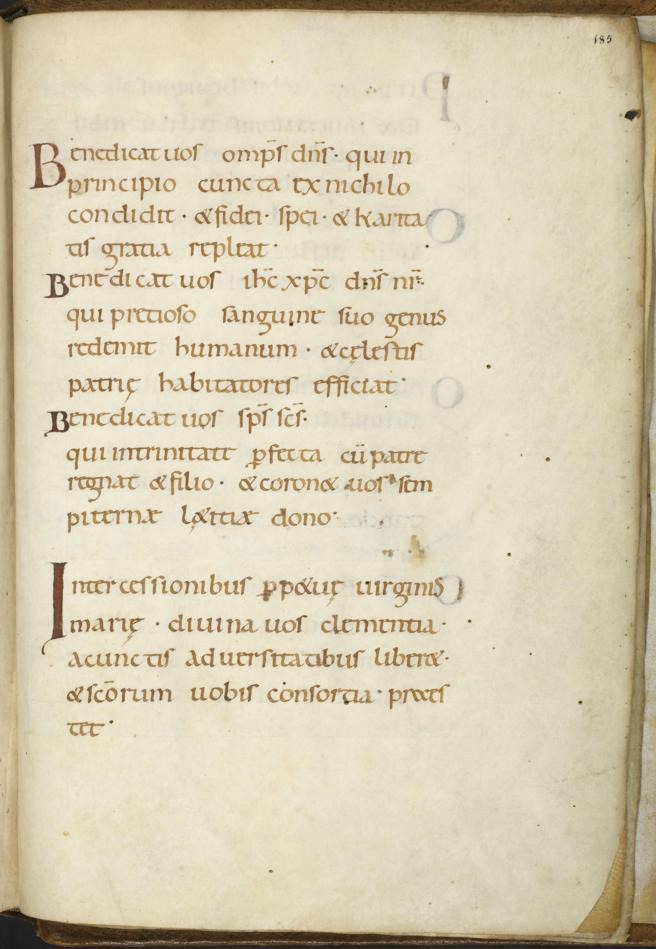 185
Benedicat uos omp̄s dn̄s· qui in
principio cuncta ex nichilo
condidit · & fidei· spei· & karita
tis gratia repleat·
Benedicat uos ihc̄ xpc̄ dn̄s nr̄·
qui precioso sanguine suo genus
redemit humanum · & cęlestis
patrię habitatores efficiat·
Benedicat uos sp̄s sc̄s·
qui intrinitate ꝑfecta cū patre
regnat & filio· & coron& uos sem
piternæ lætitiæ dono·
Intercessionibus ꝑp&uę uirginis
marię · diuina uos clementia·
acunctis aduersitatibus liber&·
& sc̄orum uobis consortia· præs
tet·